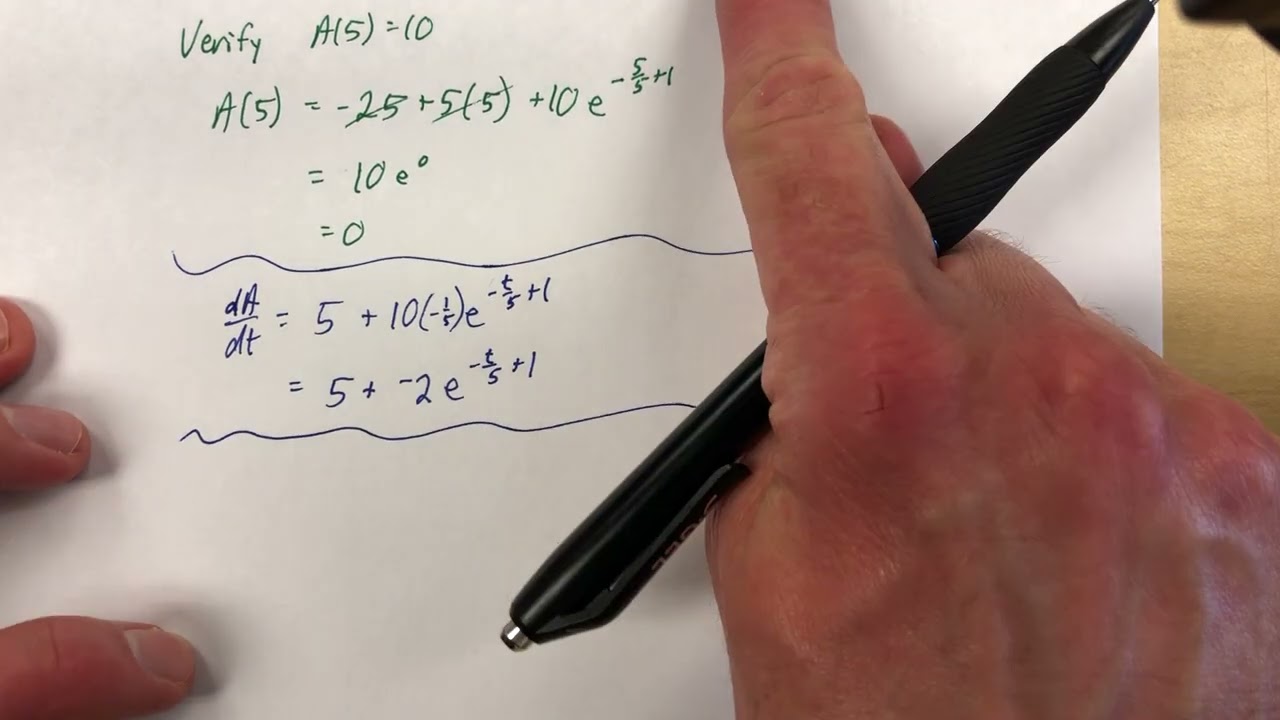 Verify A(5)=10
A(5) = -25 + 5(5) + 10 e^{-5/5+1}
= 10 e^0
= 0
dA/dt = 5 + 10(-1/5)e^{-t/5+1}
= 5 + -2e^{-t/5+1}